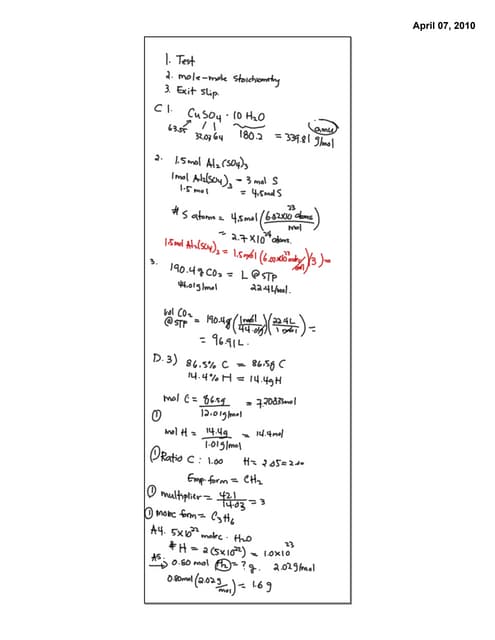 April 07, 2010
1. Test
2. mole-mole stoichiometry
3. Exit slip.
C 1. CuSO4 · 10 H2O
63.55 32.07 64 180.2 = 339.81 g/mol
2. 1.5 mol Al2(SO4)3
1 mol Al2(SO4)3 - 3 mol S
1.5 mol = 4.5 mol S
# S atoms = 4.5 mol (6.02x10^23 atoms / mol)
= 2.7 x 10^24 atoms.
1.5 mol Al2(SO4)3 = 1.5 mol (6.02x10^23 /mol)(3) =
3. 190.4 g CO2 = L @ STP
44.01 g/mol 22.4 L/mol.
vol CO2 @STP = 190.4 g (1 mol / 44.01 g)(22.4 L / 1 mol) =
= 96.91 L.
D. 3) 86.5% C = 86.5 g C
14.4% H = 14.4 g H
mol C = 86.5 g / 12.01 g/mol =
① mol H = 14.4 g / 1.01 g/mol = 14.4 mol
① Ratio C : 1.00 H =
Emp form = CH2
① multiplier = 42.1 / 14.03 = 3
① molec form = C3H6
A4. 5x10^22 molec. H2O
# H = 2(5x10^22) = 1.0x10^23
A5. → 0.80 mol H2 = ? g. 2.02 g/mol
0.80 mol (2.02 g / mol) = 1.6 g